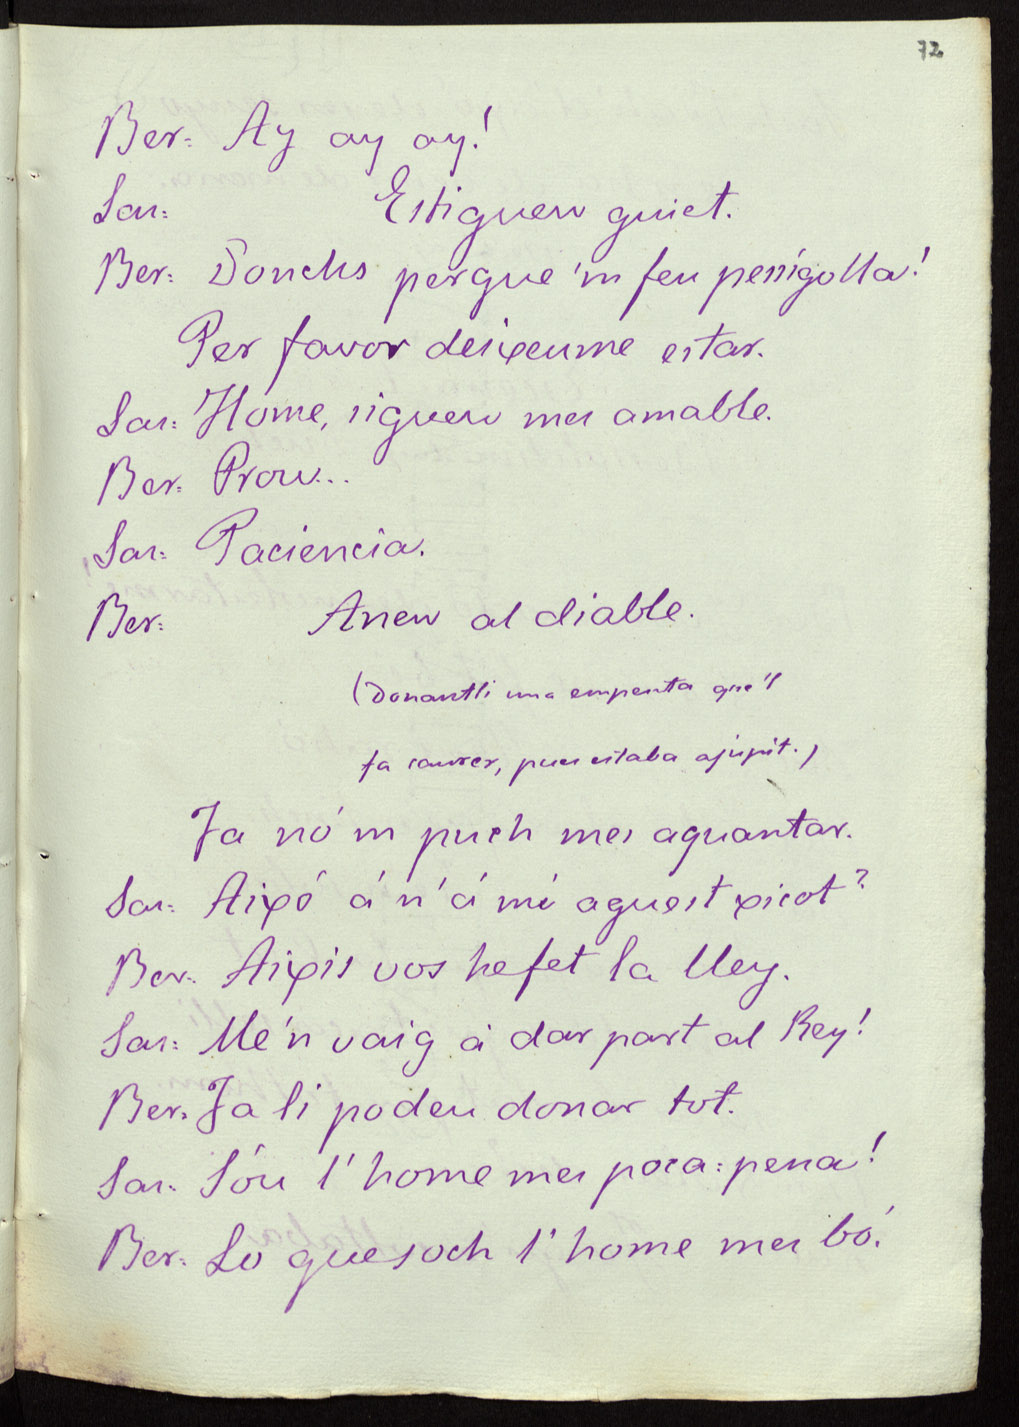 72
Ber: Ay ay ay!
Sas: Estigueu quiet.
Ber: Donchs perque 'm feu pessigolla!
Per favor deixeume estar.
Sas: Home, sigueu mes amable.
Ber: Prou...
Sas: Paciencia.
Ber: Aneu al diable.
(Donantli una empenta que 'l
fa caurer, puis estaba ajupit.)
Ja nó 'm puch mes aguantar.
Sas: Aixó á n' á mi aquest xicot?
Ber: Aixis vos he fet la lley.
Sas: Me 'n vaig á dar part al Rey!
Ber: Ja li podeu donar tot.
Sas: Sóu l' home mes poca-pena!
Ber: Lo que soch l' home mes bó.